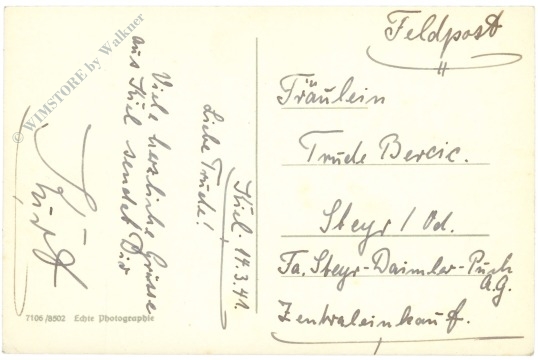 Feldpost
Fräulein
Trude Bercic.
Steyr / Od.
Fa. Steyr-Daimler-Puch
A.G.
Zentraleinkauf.
Kiel. 14.3.41
Liebe Trude!
Viele herzliche Grüsse
aus Kiel sendet Dir
7106/8502 Echte Photographie
© WIMSTORE by Walkner